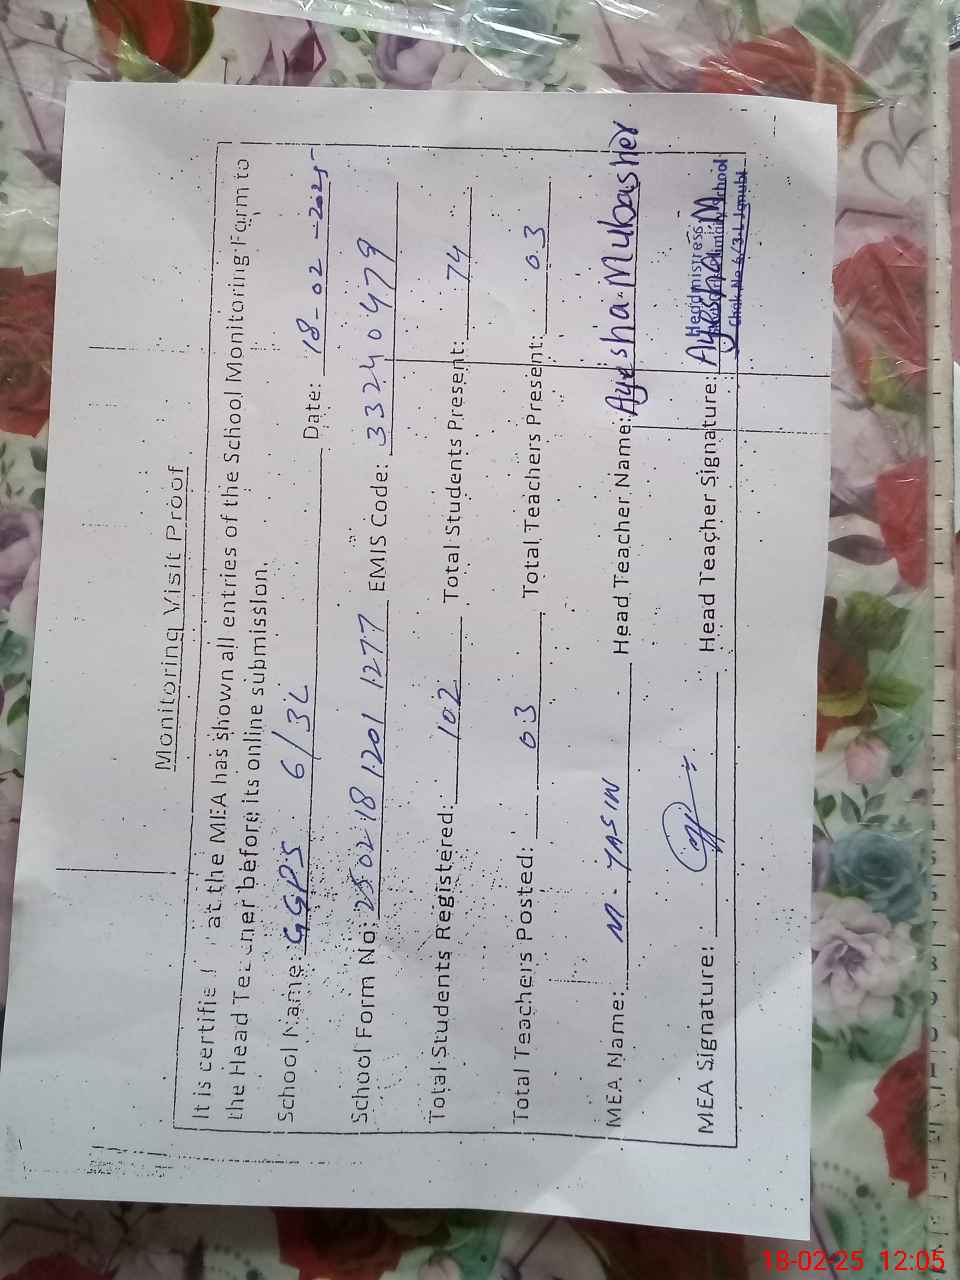 Monitoring Visit Proof
It is certified that the MEA has shown all entries of the School Monitoring Form to
the Head Teacher before its online submission.
School Name: GGPS 6/3L Date: 18-02-2025
School Form No: 2502181201 1277 EMIS Code: 33240479
Total Students Registered: 102 Total Students Present: 74
Total Teachers Posted: 03 Total Teachers Present: 03
MEA Name: M. YASIN Head Teacher Name: Ayesha Mubasher
MEA Signature: Head Teacher Signature: Ayesha M
Headmistress
Primary School
Chak No 6/3.L
18-02-25 12:05